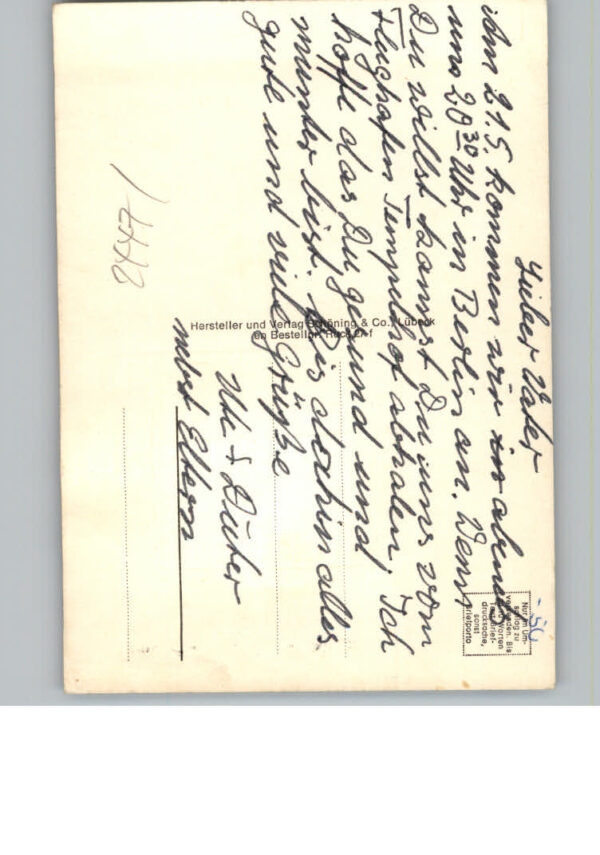 Lieber Vater
Am 21.5. kommen wir in abends
um 20³⁰ Uhr in Berlin an. Wenn
Du willst kannst Du uns vom
Flughafen Tempelhof abhalen. Ich
hoffe das Du gesund und
munter bist. Bis dachin alles
gute und viele Grüße
Ute + Dieter
nebst Eltern
Hersteller und Verlag Schöning & Co., Lübeck
en Bestellnr.
Nur im Um-
schlag zu
versenden. Bis
Worten
Brief-
drucksache,
sonst
Briefporto
-50
2447/